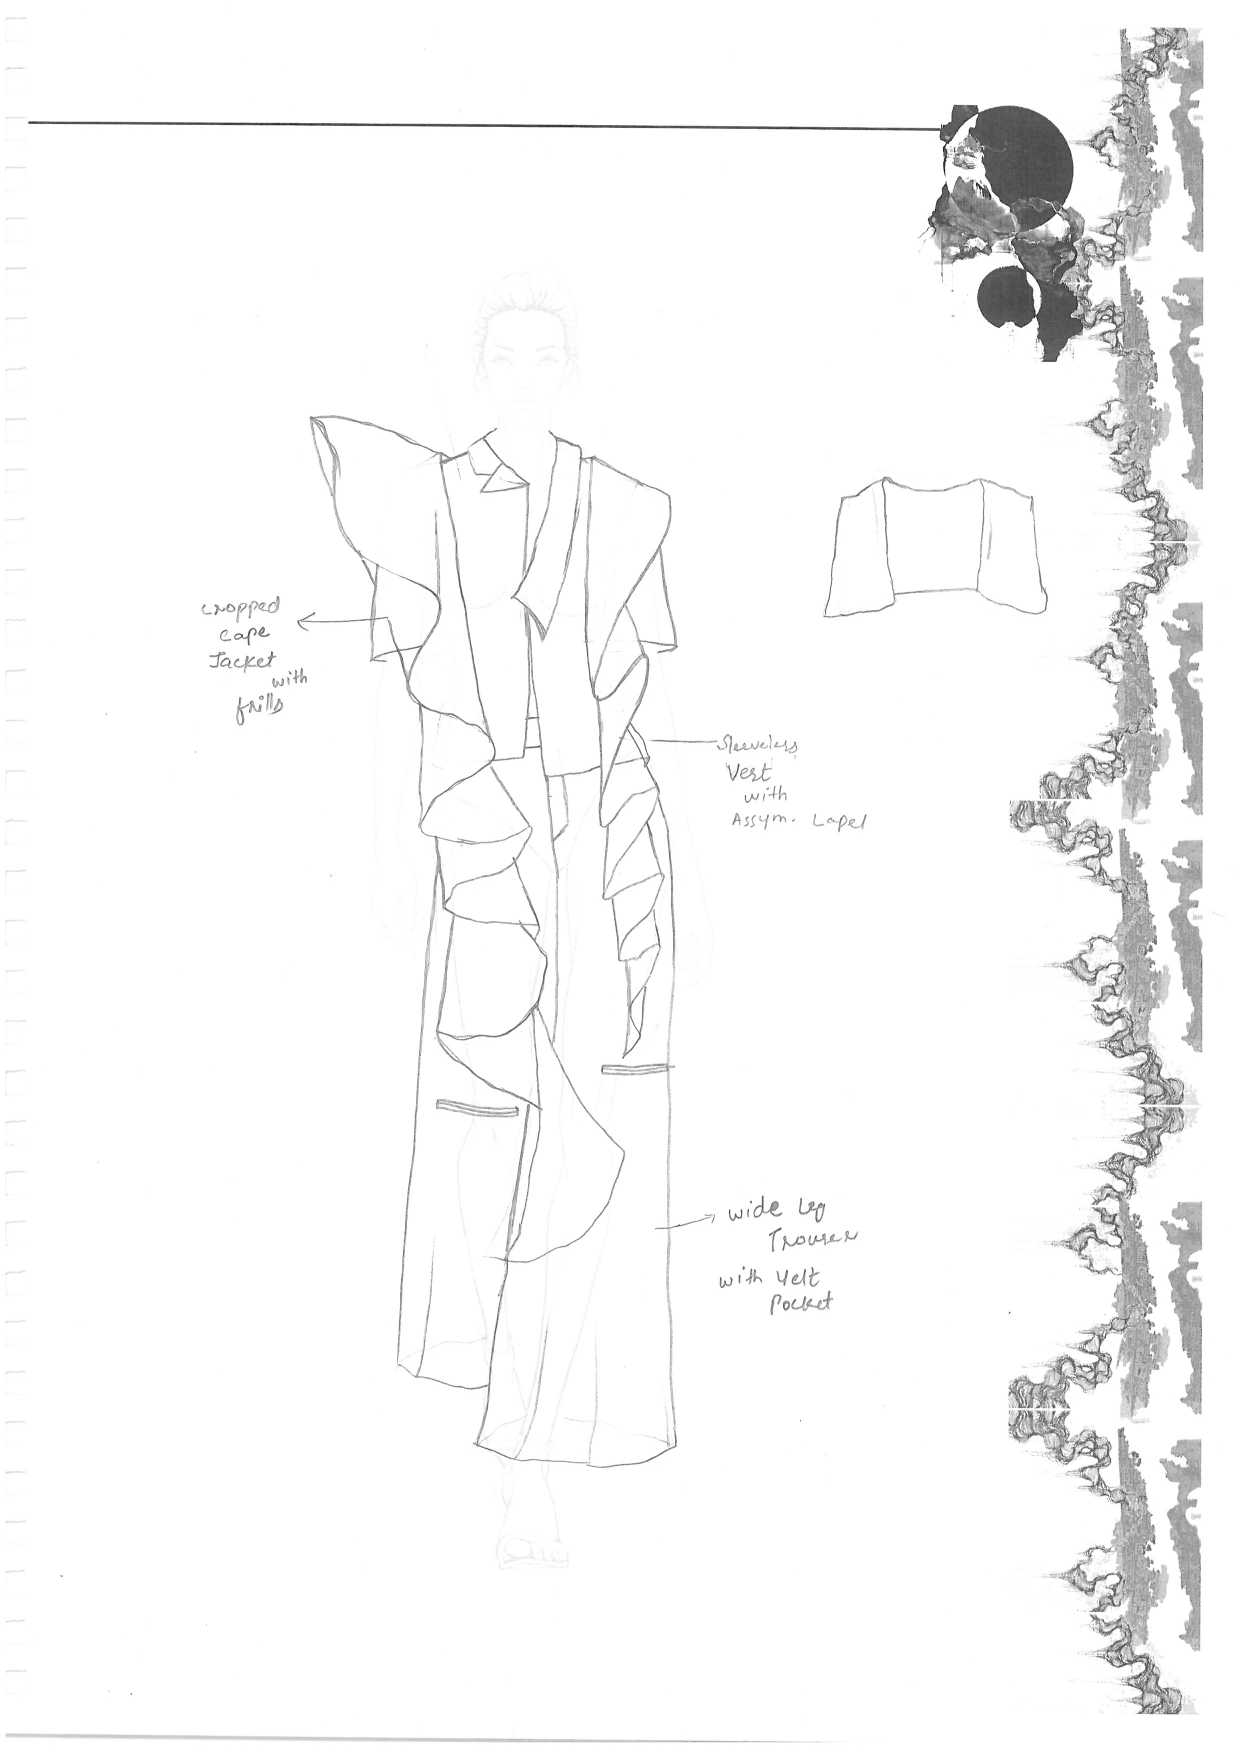 cropped
cape
Jacket
with
frills
Sleeveless
Vest
with
Assym. Lapel
wide leg
Trouser
with Welt
Pocket